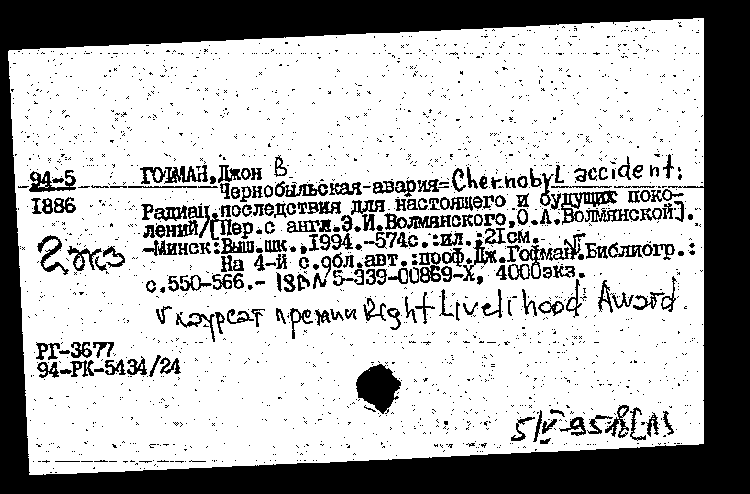 94-5 ГОФМАН,Джон В
Чернобыльская авария=Chernobyl accident:
1886 Радиац.последствия для настоящего и будущих поко-
лений/[Пер.с англ.Э.И.Волмянского,О.А.Волмянской].
2 экз -Минск:Выш.шк.,1994.-574с.:ил.;21см.
На 4-й с.обл.авт.:проф.Дж.Гофман.Библиогр.:
с.550-566.- ISBN 5-339-00869-X, 4000экз.
лауреат премии Right Livelihood Award
РГ-3677
94-РК-5434/24
5/V-95